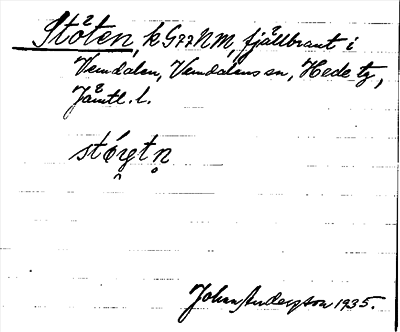 Stöten, k G77 NM, fjällbrant i
Vemdalen, Vemdalens sn, Hede tg,
Jämtl. l.
Johan Anderzson 1935.